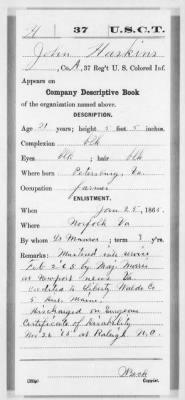 H 37 U.S.C.T.
John Haskins
, Co. A, 37 Reg't U. S. Colored Inf.
Appears on
Company Descriptive Book
of the organization named above.
DESCRIPTION.
Age 21 years; height 5 feet 5 inches.
Complexion blk
Eyes blk; hair blk
Where born Petersburg, Va
Occupation farmer
ENLISTMENT.
When Jan 25, 1865.
Where Norfolk Va
By whom ; term 3 y'rs.
Remarks: Mustered into service
Feb 2 '65 by Maj
at Newport news Va
Credited to Liberty Waldo Co
5 Maine.
Discharged on Surgeons
Certificate of Disability
Nov 26 '65 at Raleigh N.C.
Copyist.